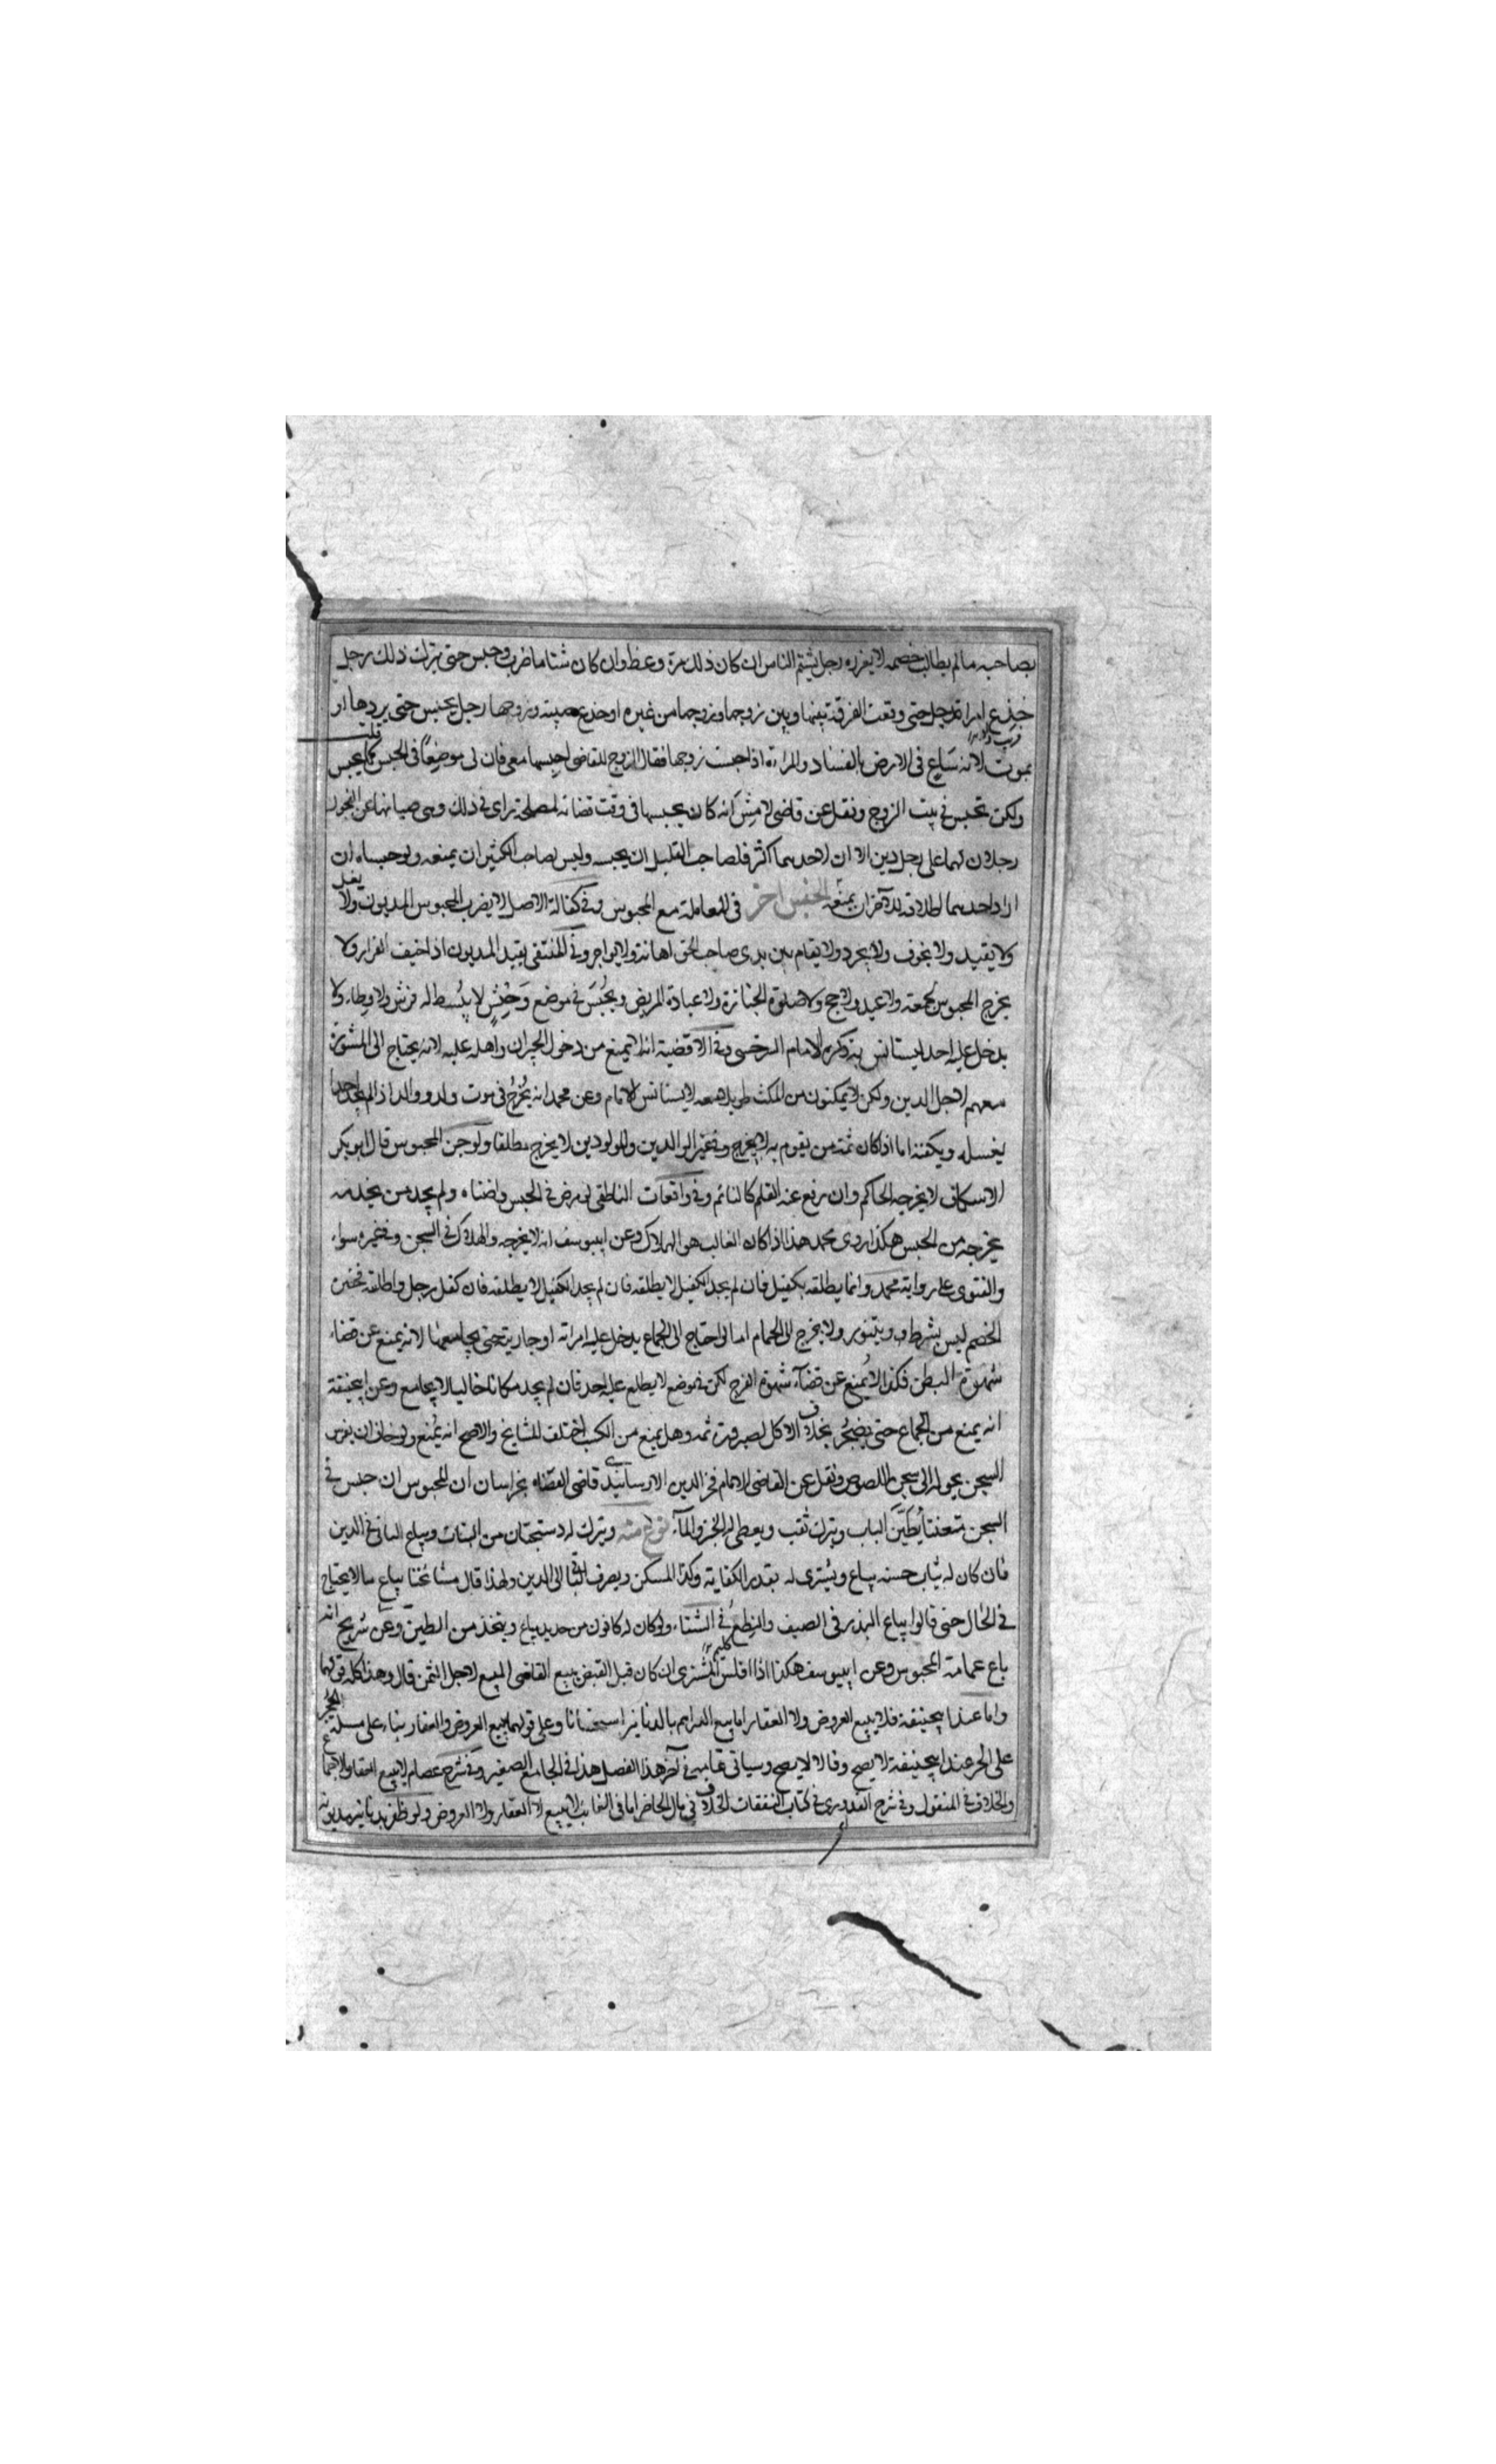 بصاحبه مالم يطالب خصمه لا يعزره رجل يشتم الناس ان كان ذلك مرة وعظ وان كان شتاما ضرب وحبس حتى يترك ذلك رجل
خدع امراة رجل حتى وقعت الفرقة بينها وبين زوجها وزوجها من غيره او خدع صبية وزوجها رجل يحبس حتى يردها او
يموت لانه ساع فى الارض بالفساد والمراة اذا حبست زوجها فقال الزوج للقاضى احبسها معى فان لى موضعا فى الحبس لا يحبس
ولكن تحبس فى بيت الزوج ونقل عن قاضى لامش انه كان يحبسها فى وقت قضائه لمصلحة تراى فى ذلك وهى صيانتها عن الفجور
رجلان لهما على رجل دين الا ان لاحدهما اكثر فلصاحب القليل ان يحبسه وليس لصاحب الكثير ان يمنعه ولو حبساه ان
اراد احدهما اطلاقه للآخر ان يمنعه الجنس آخر فى المعاملة مع المحبوس وفى كفالة الاصل لا يضرب المحبوس المديون ولا يغل
ولا يقيد ولا يخوف ولا يجرد ولا يقام بين يدى صاحب الحق اهانة ولا يواجر وفى المنتقى يقيد المديون اذا خيف الفرار ولا
يخرج المحبوس لجمعة ولا عيد ولا حج ولا صلوة الجنازة ولا عيادة المريض ويحبس فى موضع وحش لا يبسط له فرش ولا وطاء ولا
يدخل عليه احد ليستانس به ذكره الامام السرخسى وفى الاقضية انه لا يمنع من دخول الجيران واهله عليه لانه يحتاج الى المشورة
معهم لاجل الدين ولكن لا يمكنون من المكث طويلا معه لا يستانس الامام وعن محمد انه يخرج فى موت ولد ووالد اذا لم يجد احدا
يغسله ويكفنه اما اذا كان ثمة من يقوم به لا يخرج وفى غير الوالدين والمولودين لا يخرج مطلقا ولو جن المحبوس قال ابو بكر
الاسكاف لا يخرجه الحاكم وان رفع عنه القلم كالنائم وفى واقعات الناطفى لو مرض فى الحبس واضناه ولم يجد من يخدمه
يخرجه من الحبس هكذا روى محمد هذا اذا كان الغالب هو الهلاك وعن ابيوسف انه لا يخرجه والهلاك فى السجن وفى غيره سواء
والفتوى على رواية محمد وانما يطلقه بكفيل فان لم يجد الكفيل لا يطلقه فان لم يجد الكفيل لا يطلقه فان كفل رجل واطلقه فحضرة
الخصم ليس بشرط ويتنور ولا يخرج الى الحمام اما لو احتاج الى الجماع يدخل عليه امراته او جاريته حتى يجامعها لانه يمنع عن قضاء
شهوة البطن فكذا لا يمنع عن قضاء شهوة الفرج لكن فى موضع لا يطلع عليه احد فان لم يجد مكانا خاليا لا يجامع وعن ابيحنيفة
انه يمنع من الجماع حتى يضجر بخلاف الاكل لضرورة ثمة وهل يمنع من الكسب اختلف المشايخ والاصح انه يمنع ولو خاف ان يفر من
السجن يحوله الى سجن اللصوص ونقل عن القاضى الامام فخر الدين الارسابندى قاضى القضاة بخراسان ان المحبوس ان حبس فى
السجن متعنتا يطين الباب ويترك ثقب ويعطى له الخبز والماء نوع منه ويترك له دستجتان من الثياب ويباع الباقى فى الدين
فان كان له ثياب حسنة يباع ويشترى له بقدر الكفاية وكذا المسكن ويصرف الباقى الى الدين ولهذا قال مشائخنا يباع مالا يحتاج
فى الحال حتى قالوا يباع اللبد فى الصيف والنطع فى الشتاء ولو كان له كانون من حديد يباع ويتخذ من الطين وعن شريح انه
باع عمامة المحبوس وعن ابيوسف هكذا اذا افلس المشترى ان كان قبل القبض يبيع القاضى المبيع لاجل الثمن قال وهذا كله قولهما
واما عند ابيحنيفة فلا يبيع العروض ولا العقار اما بيع الدراهم بالدنانير استحسانا وعلى قولهما يبيع العروض والعقار بناء على مسئلة الحجر
على الحر عند ابيحنيفة لا يصح وقالا لا يصح وسياتى تمامه فى آخر هذا الفصل هذا فى الجامع الصغير وفى شرح عصام لا يبيع العقار ولاجماعا
والخلاف فى المنقول وفى شرح القدورى فى كتاب النفقات الخلاف فى مال الحاضر اما فى الغائب لا يبيع لا العقار ولا العروض ولو ظفر بدنانير مديونه